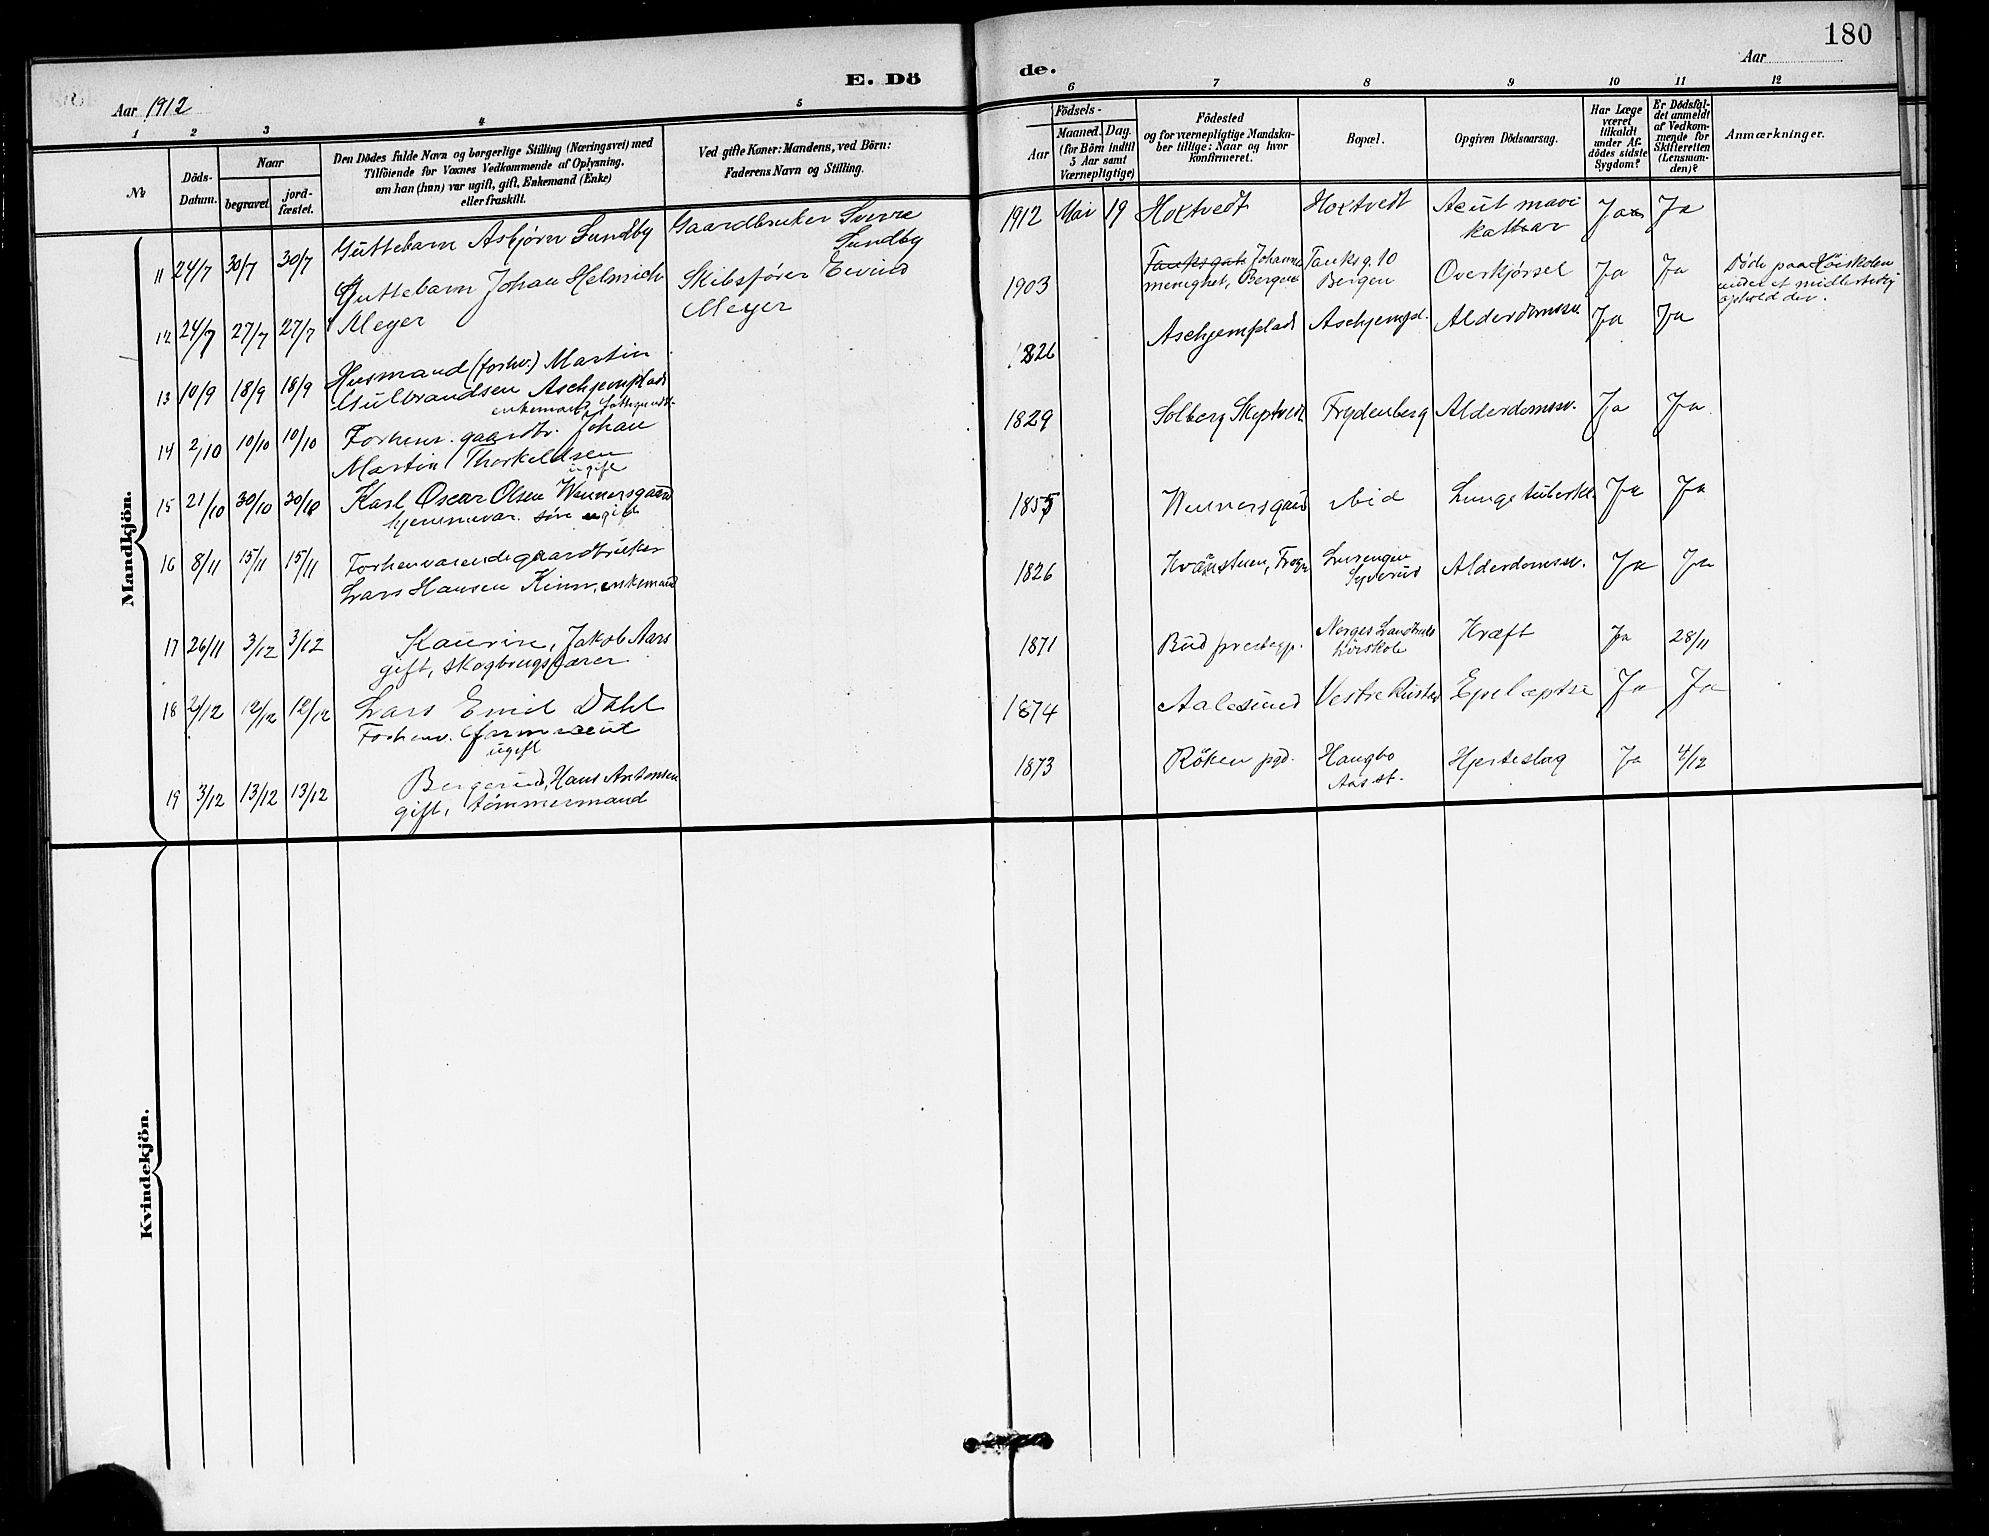 180
E. Dö
de.
Aar 1912
Aar
1 2 3 4 5 6 7 8 9 10 11 12
№
Döds-
Datum.
Naar
begravet.
jord-
fæstet.
Den Dödes fulde Navn og borgerlige Stilling (Næringsvei) med
Tilföiende for Voxnes Vedkommende af Oplysning,
om han (hun) var ugift, gift, Enkemand (Enke)
eller fraskilt.
Ved gifte Koner: Mandens, ved Börn:
Faderens Navn og Stilling.
Födsels-
Aar
Maaned. Dag.
(for Börn indtil
5 Aar samt
Værnepligtige)
Födested
og for værnepligtige Mandska-
ber tillige: Naar og hvor
konfirmeret.
Bopæl.
Opgiven Dödsaarsag.
Har Læge
været
tilkaldt
under Af-
dödes sidste
Sygdom?
Er Dödsfal-
det anmeldt
af Vedkom-
mende for
Skifteretten
(Lensman-
den)?
Anmærkninger.
Mandkjön.
11 24/7 30/7 30/7 Guttebarn Asbjørn Sundby Gaardbruker Sverre
Sundby
1912 Mai 19 Hoxtvedt Hoxtvedt Acut mave
kattar Ja Ja
12 24/7 27/7 27/7 Guttebarn Johan Helmich
Meyer
Skibsfører Eivind
Meyer
1903 Tanksgate Johannes
menighet, Bergen
Tanksg. 10
Bergen
Overkjørsel Ja Ja
Døde paa Høiskolen
under et midlertidig
ophold der.
13 10/9 18/9 18/9 Husmand (forhv.) Martin
Gulbrandsen Aschjemplads
enkemand,
1826 Aschjemplads Aschjempl. Alderdomssv. Ja Ja
14 2/10 10/10 10/10 Forhenv. gaardbr. Johan
Martin Thorkeldsen
ugift
1829 Solberg Skiptvedt Frydenberg Alderdomssv. Ja Ja
15 21/10 30/10 30/10 Karl Oscar Olsen Wennersgaard
hjemmevær. søn ugift
1855 Wennersgaard ibid Lungetuberkl. Ja Ja
16 8/11 15/11 15/11 Forhenværende gaardbruker
Lars Hansen Kinn, enkemand
1826 Frogn
Syverud Alderdomssv. Ja Ja
17 26/11 3/12 3/12 Kaurin, Jakob Aars
gift, skogbrugslærer
1871 Bud prestegj. Norges Landbruks
høiskole Kræft Ja 28/11
18 2/12 12/12 12/12 Lars Emil Dahl
Forhenv.
ugift
1874 Aalesund Vestre Rustad Epelæptsi Ja Ja
19 3/12 13/12 13/12 Bergerud, Hans Antonsen
gift, tømmermand
1873 Röken pgd. Haugbo
Aas st. Hjerteslag Ja 4/12
Kvindekjön.